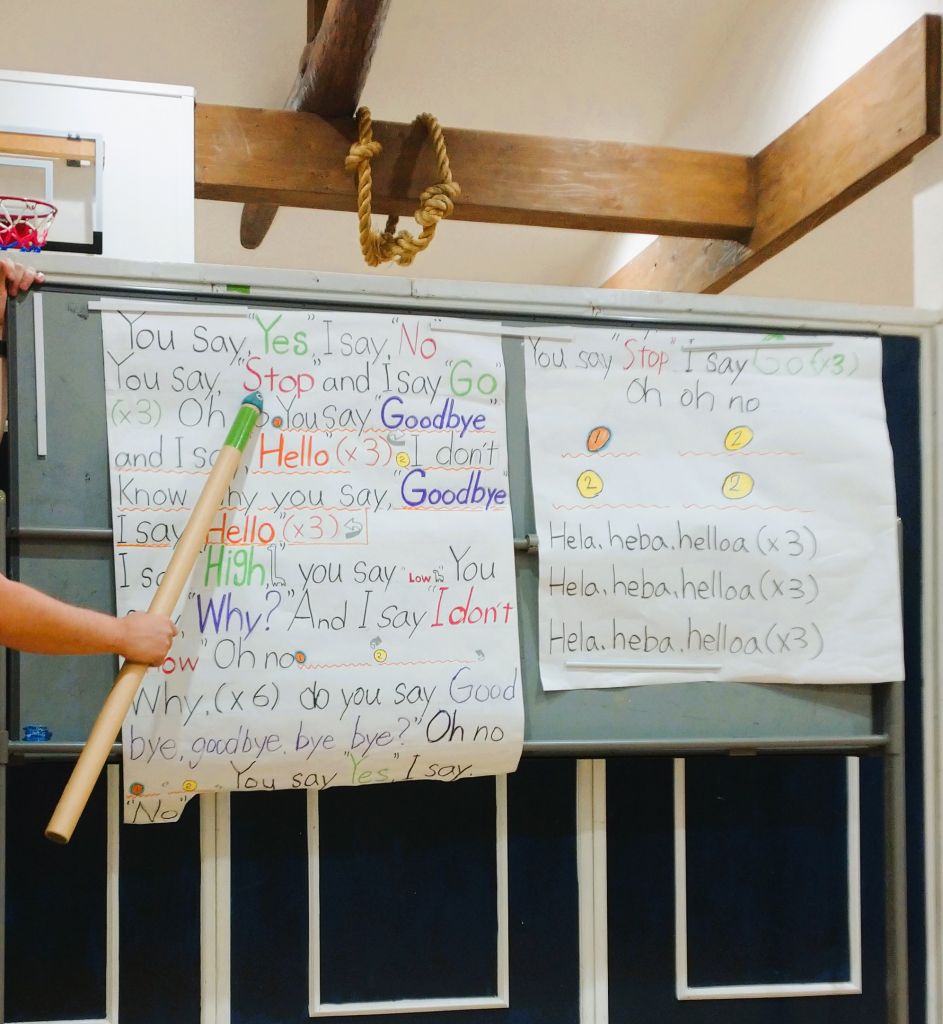 You say, "Yes" I say, "No"
You say, "Stop" and I say "Go"
(x3) Oh You say "Goodbye"
and I "Hello" (x3) 2 I don't
Know you say, "Goodbye"
I say "Hello" (x3)
I "High" you say "Low" You
"Why?" And I say "I don't
" Oh no 1 2
Why, (x6) do you say Good
bye, goodbye, bye bye?" Oh no
1 2 You say "Yes", I say.
"No"
You say "Stop" I say Go (x3)
Oh oh no
1 2
2 2
Hela, heba, helloa (x3)
Hela, heba, helloa (x3)
Hela, heba, helloa (x3)